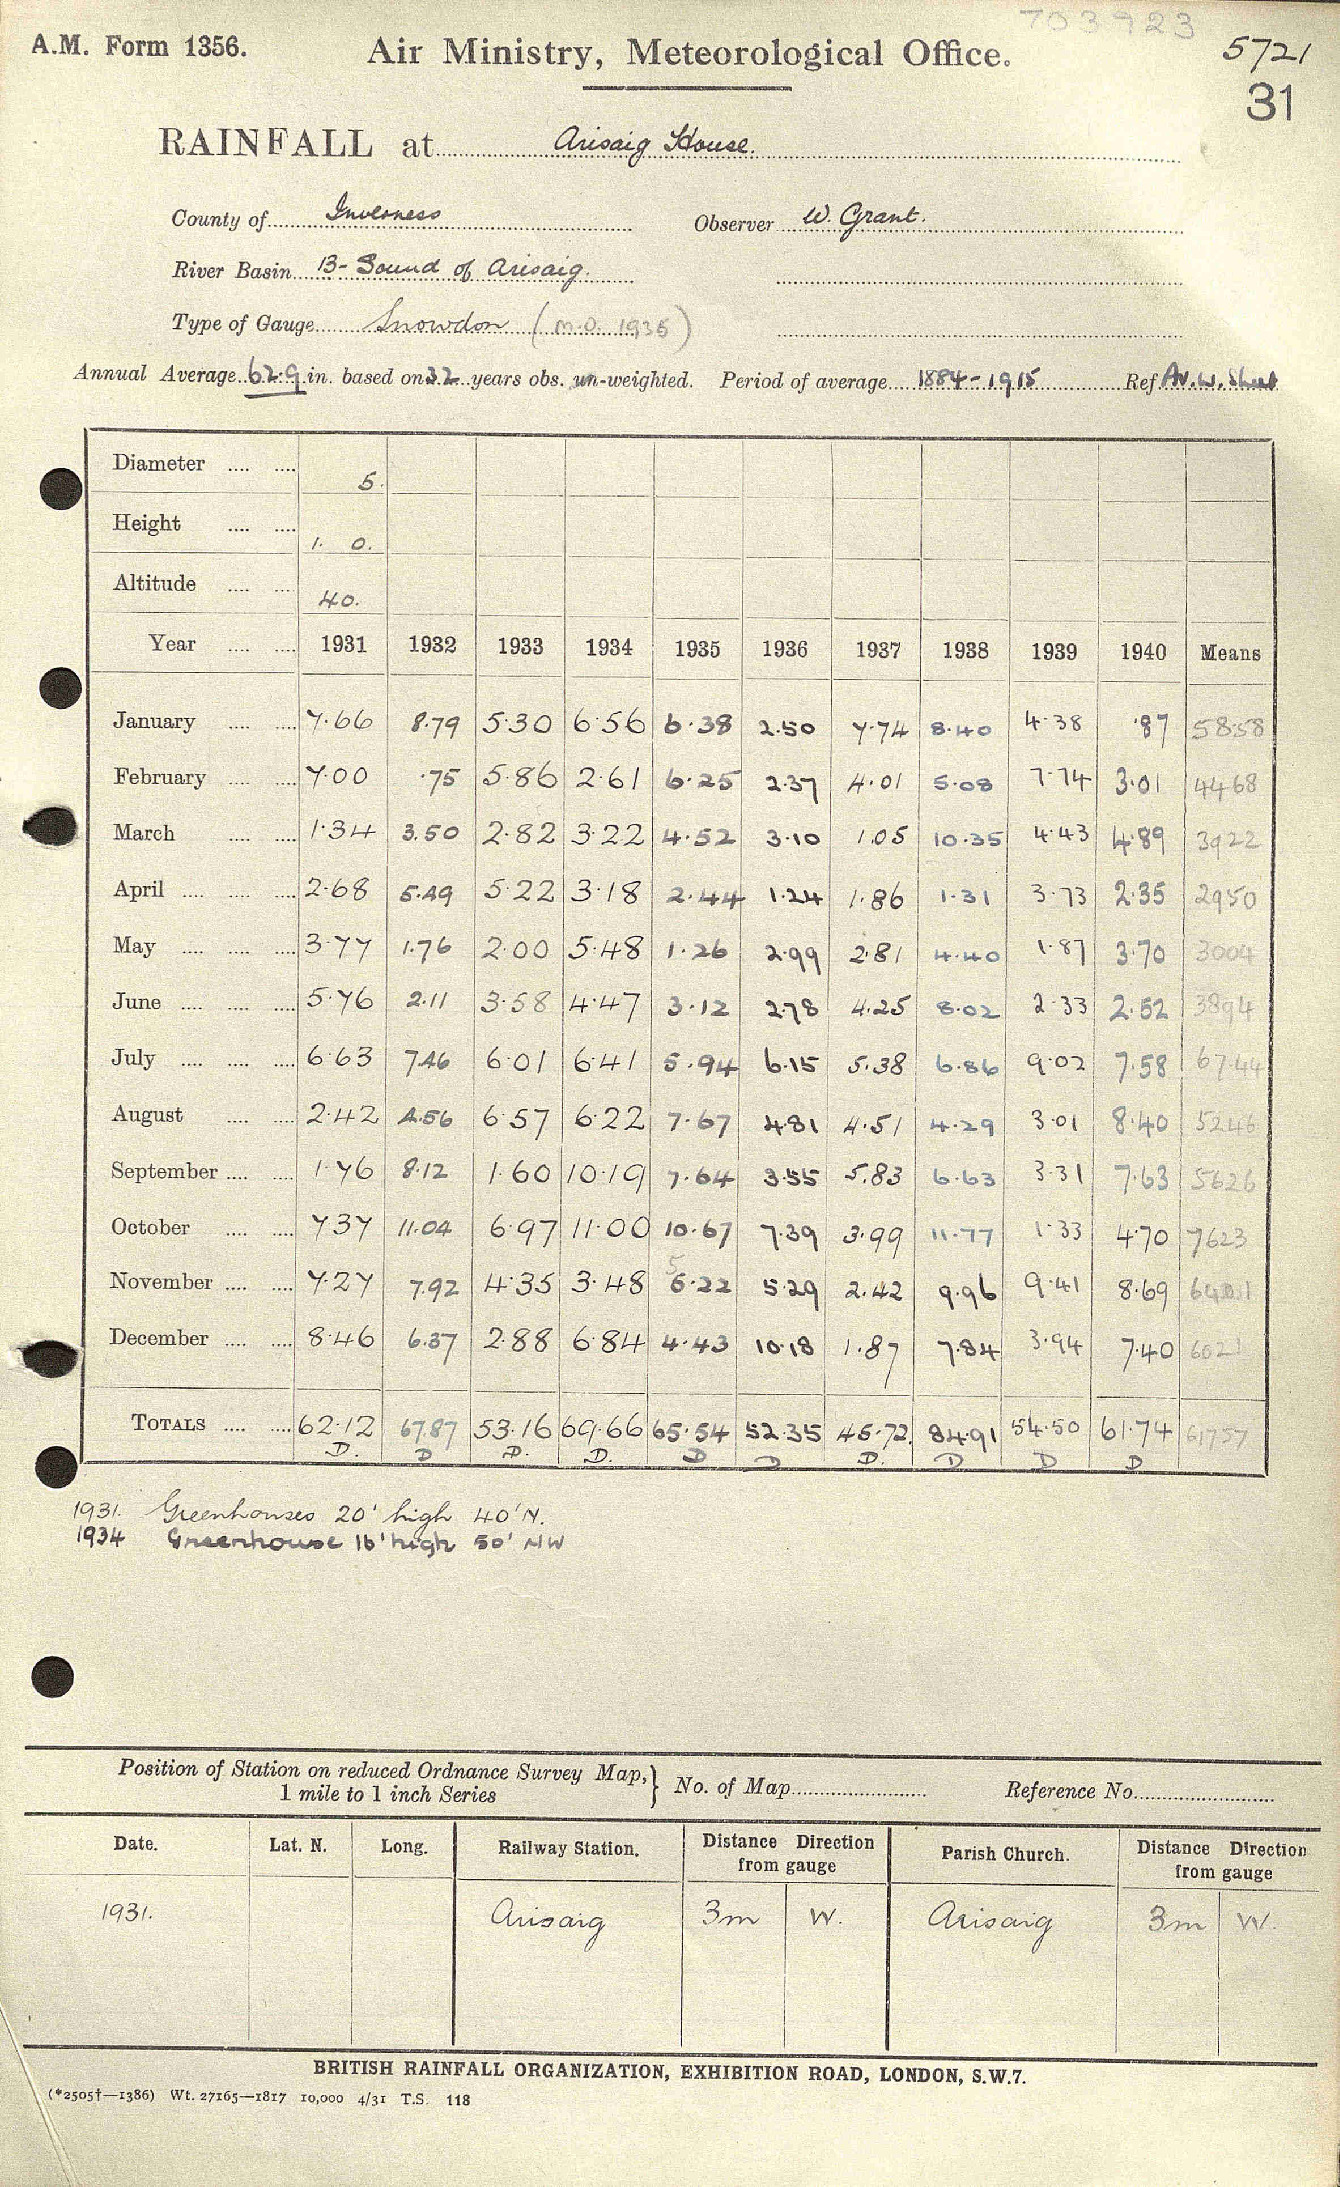 703923
A.M. Form 1356.
Air Ministry, Meteorological Office.
5721
31
RAINFALL at Arisaig House.
County of Inverness Observer W. Grant.
River Basin 13- Sound of Arisaig.
Type of Gauge Snowdon (M.O. 1935)
Annual Average 62.9 in. based on 32 years obs. un-weighted. Period of average 1884-1915 Ref Av. W. Sheet
Diameter .... .... 5.
Height .... .... 1. 0.
Altitude .... .... 40.
Year .... .... 1931 1932 1933 1934 1935 1936 1937 1938 1939 1940 Means
January .... .... 7.66 8.79 5.30 6.56 6.38 2.50 7.74 8.40 4.38 .87 58.58
February .... .... 7.00 .75 5.86 2.61 6.25 2.37 4.01 5.08 7.74 3.01 4468
March .... .... 1.34 3.50 2.82 3.22 4.52 3.10 1.05 10.35 4.43 4.89 3922
April .... .... .... 2.68 5.49 5.22 3.18 2.44 1.24 1.86 1.31 3.73 2.35 2950
May .... .... .... 3.77 1.76 2.00 5.48 1.26 2.99 2.81 4.40 1.87 3.70 3004
June .... .... .... 5.76 2.11 3.58 4.47 3.12 2.78 4.25 8.02 2.33 2.52 3894
July .... .... .... 6.63 7.46 6.01 6.41 5.94 6.15 5.38 6.86 9.02 7.58 67.44
August .... .... 2.42 4.56 6.57 6.22 7.67 4.81 4.51 4.29 3.01 8.40 5246
September .... .... 1.76 8.12 1.60 10.19 7.64 3.55 5.83 6.63 3.31 7.63 5626
October .... .... 7.37 11.04 6.97 11.00 10.67 7.39 3.99 11.77 1.33 4.70 7623
5
November .... .... 7.27 7.92 4.35 3.48 6.22 5.29 2.42 9.96 9.41 8.69
December .... .... 8.46 6.37 2.88 6.84 4.43 10.18 1.87 7.84 3.94 7.40 6021
TOTALS .... .... 62.12 67.87 53.16 69.66 65.54 52.35 45.72. 84.91 54.50 61.74 61757
D. D D. D. D D D. D D D
1931. Greenhouses 20' high 40' N.
1934 Greenhouse 16' high 50' NW
Position of Station on reduced Ordnance Survey Map, } No. of Map Reference No.
1 mile to 1 inch Series
Date. Lat. N. Long. Railway Station. Distance Direction from gauge Parish Church. Distance Direction from gauge
1931. Arisaig 3m W. Arisaig 3m W.
BRITISH RAINFALL ORGANIZATION, EXHIBITION ROAD, LONDON, S.W.7.
(*2505†—1386) Wt. 27165—1817 10,000 4/31 T.S. 118